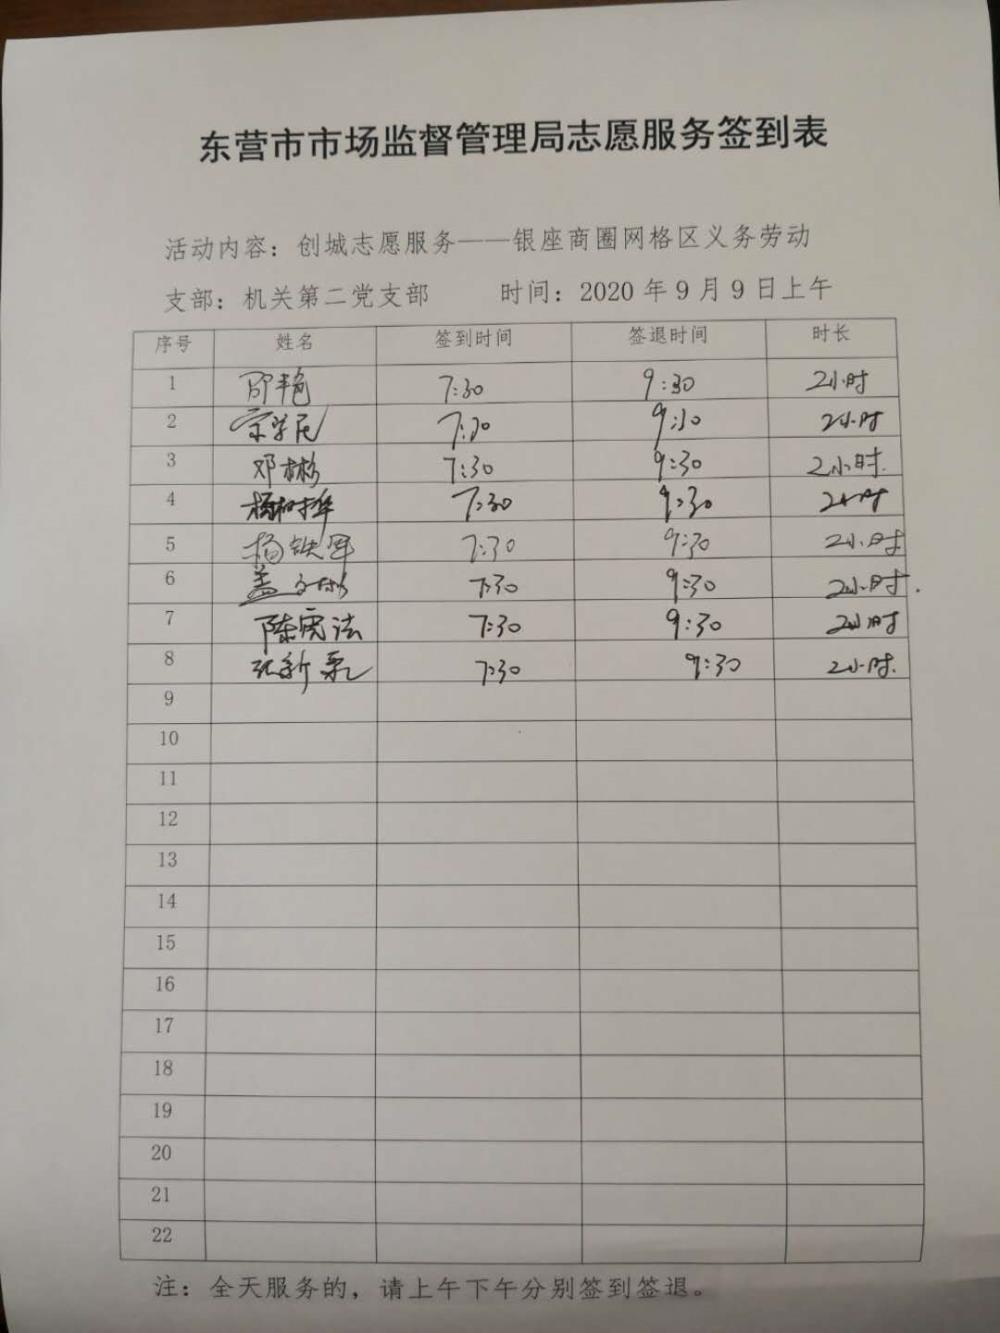 东营市市场监督管理局志愿服务签到表
活动内容：创城志愿服务——银座商圈网格区义务劳动
支部：机关第二党支部 时间：2020年9月9日上午
序号 姓名 签到时间 签退时间 时长
1 7:30 9:30 2小时
2 7:30 9:30 2小时
3 邓彬 7:30 9:30 2小时
4 杨树华 7:30 9:30 2小时
5 杨铁军 7:30 9:30 2小时
6 盖文彬 7:30 9:30 2小时.
7 陈宪法 7:30 9:30 2小时
8 张新 7:30 9:30 2小时.
9
10
11
12
13
14
15
16
17
18
19
20
21
22
注：全天服务的，请上午下午分别签到签退。